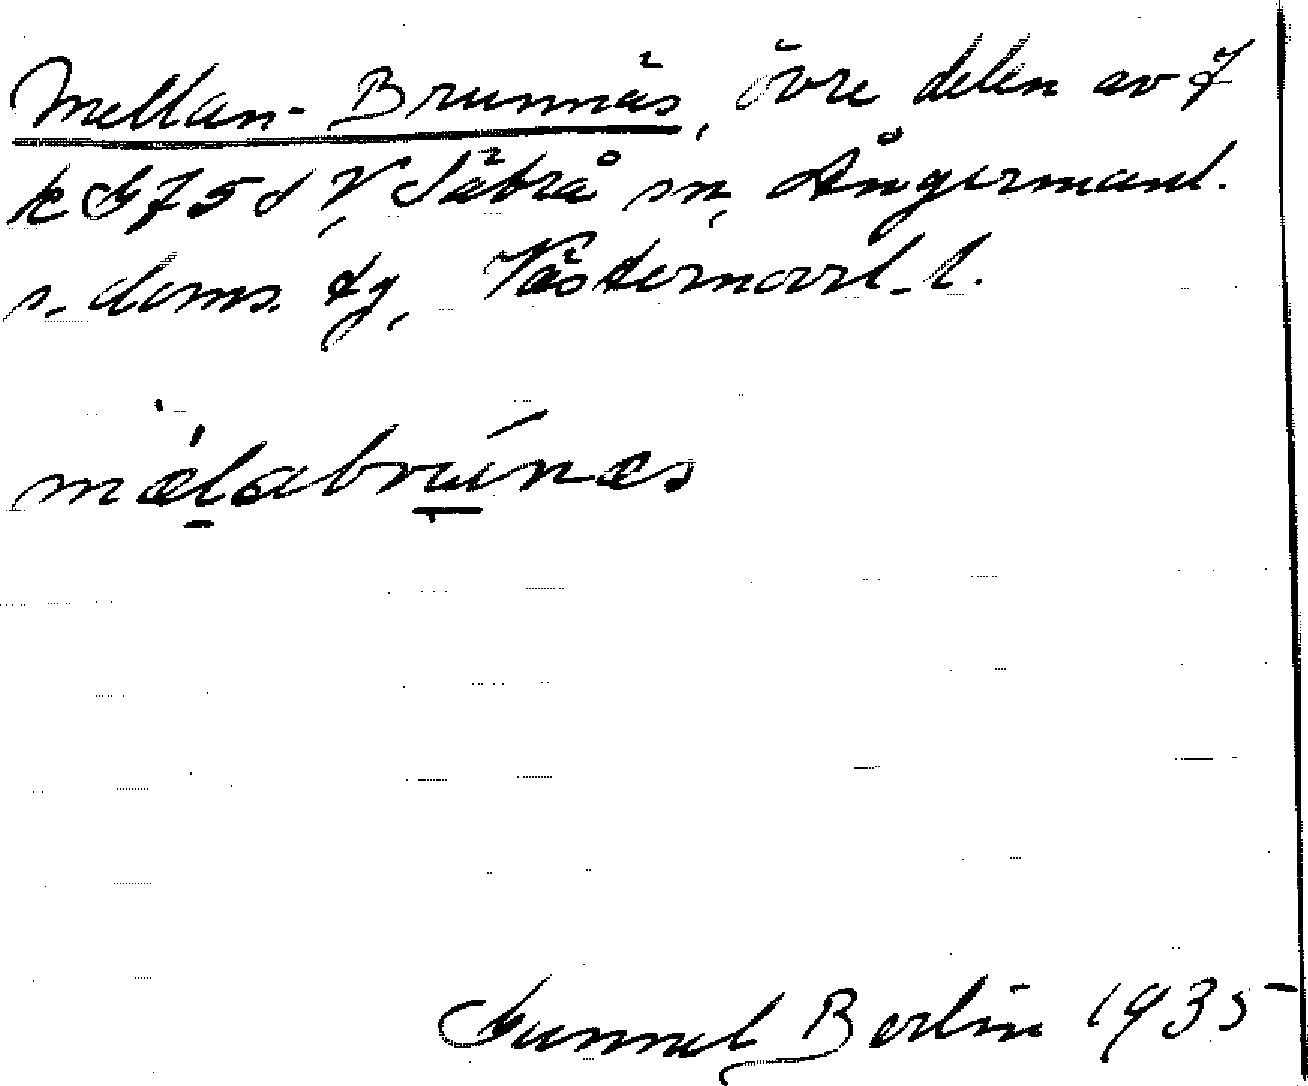 Mellan-Brunnäs, övre delen av 7
k G 7 5 d V, Säbrå sn, Ångermanl.
s. doms. tg, Västernorrl. l.
mælabrunæs
Gunnel Berlin 1935